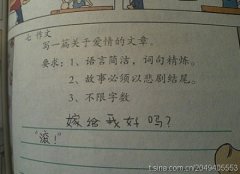 七 作文
写一篇关于爱情的文章。
要求：1、语言简洁，词句精炼。
2、故事必须以悲剧结尾。
3、不限字数
嫁给我好吗？
“滚！”
t.sina.com.cn/2049405553